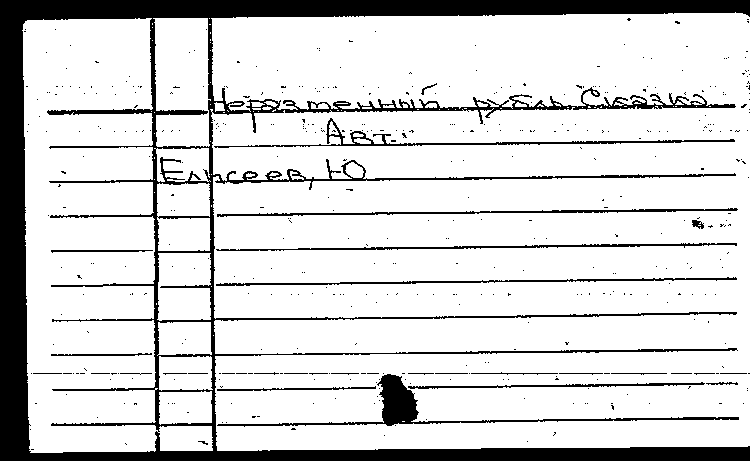 Неразменный рубль Сказка
Авт.:
Елисеев, Ю